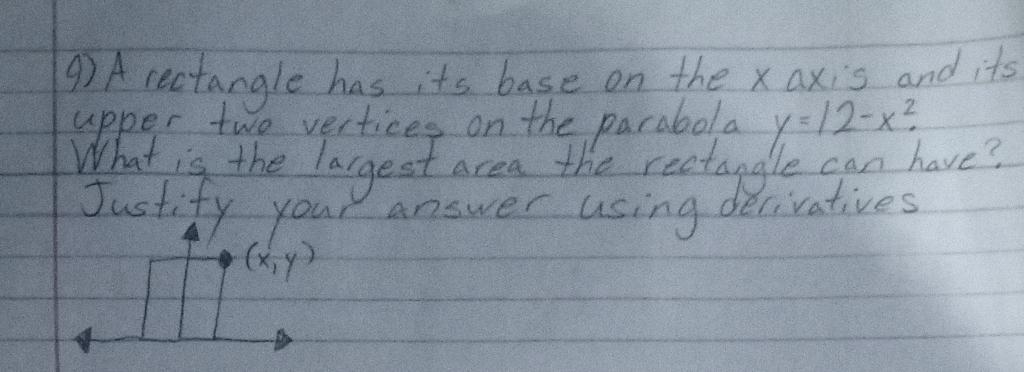 9) A rectangle has its base on the x axis and its
upper two vertices on the parabola y=12-x².
What is the largest area the rectangle can have?
Justify your answer using derivatives
(x,y)